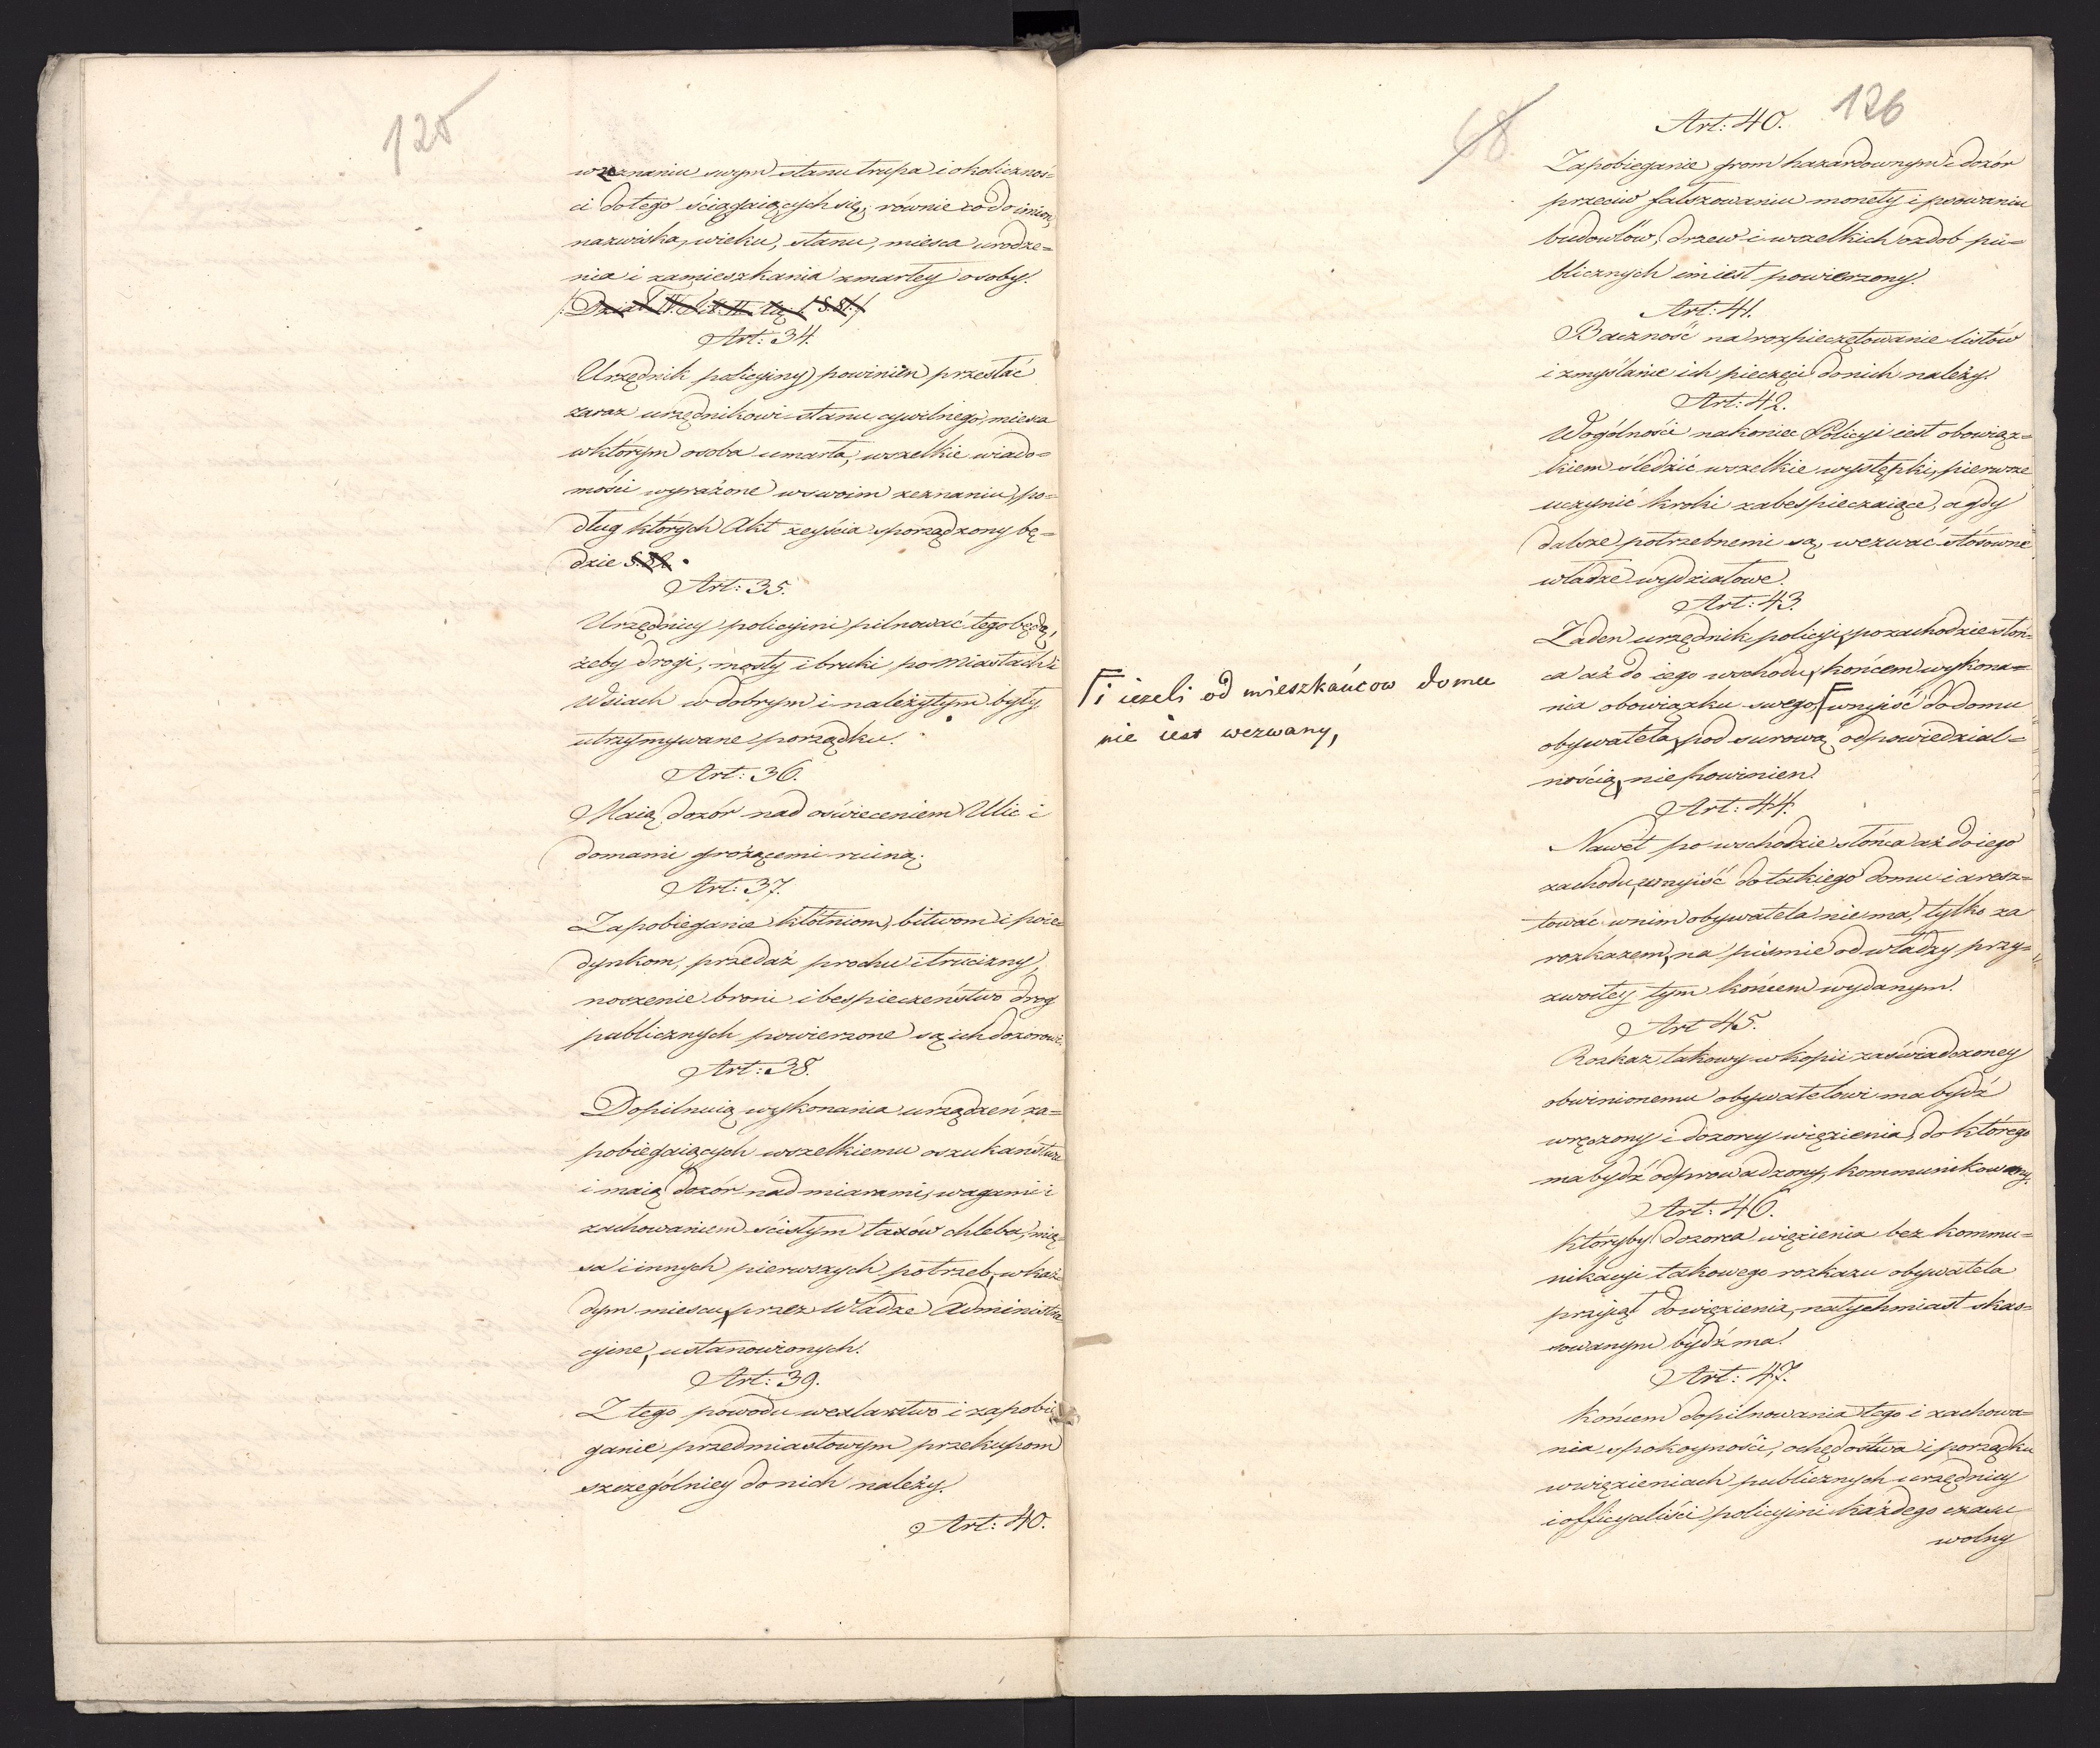 125
w zeznaniu swym stanu trupa i okolicznoś=
ci do tego ściągaiących się, równie co do imion,
nazwiska, wieku, stanu, miesca urodze=
nia i zamieszkania zmarłey osoby.
Art: 34.
Urzędnik policyiny powinien przesłać
zaraz urzędnikowi stanu cywilnego, miesca
w którym osoba umarła, wszelkie wiado=
mości wyrażone w swoim zeznaniu, po=
dług których Akt zeyścia sporządzony bę=
dzie
Art: 35.
Urzędnicy policyini pilnować tego będą,
żeby drogi, mosty i bruki po miastach i
Wsiach w dobrym i należytym były
utrzymywane porządku.
Art: 36.
Maią dozór nad oświeceniem Ulic i
domami grożącemi ruiną.
Art: 37.
Zapobieganie kłótniom, bitwom i poie=
dynkom, przedaż prochu i trucizny,
noszenie broni i bespieczeństwo drog
publicznych powierzone są ich dozorowi.
Art: 38.
Dopilnuią wykonania urządzeń za=
pobiegaiących wszelkiemu oszukaństwu
i maią dozór nad miarami, wagami i
zachowaniem ścisłym taxów chleba, mię=
sa i innych pierwszych potrzeb, w każ=
dym miescu, przez Władze Administra
cyine, ustanowionych.
Art: 39.
Z tego powodu wexlarstwo i zapobie
ganie przedmiastowym przekupom
szczególniey do nich należy.
Art: 40.
68
126
Art: 40.
Zapobieganie grom hazardownym i dozór
przeciw fałszowaniu monety i psowaniu
budowlów, drzew i wszelkich ozdob pu=
blicznych im iest powierzony.
Art: 41.
Baczność na rozpieczętowanie listów
i zmyślanie ich pieczęci do nich należy.
Art: 42.
W ogólności nakoniec Policyi iest obowiąz=
kiem śledzić wszelkie występki, pierwsze
uczynić kroki zabespieczaiące, a gdy
dalsze potrzebnemi są, wezwać stósowne
władze wydziałowe.
Art: 43.
Żaden urzędnik policyi, po zachodzie słoń=
ca aż do iego wschodu, końcem wykona=
nia obowiązku swego, wnyiść do domu
obywatela, pod surową odpowiedzial=
nością, nie powinien.
i ieżeli od mieszkańcow domu
nie iest wezwany,
Art: 44.
Nawet po wschodzie słońca aż do iego
zachodu, wnyiść do takiego domu i aresz=
tować w nim obywatela nie ma, tylko za
rozkazem, na piśmie od władzy przy=
zwoitey tym końcem wydanym.
Art 45.
Rozkaz takowy w kopii zaświadczoney
obwinionemu obywatelowi ma bydź
wręczony i dozorcy więzienia, do którego
ma bydź odprowadzony, kommunikowany.
Art: 46.
Któryby dozorca więzienia bez kommu=
nikacyi takowego rozkazu obywatela
przyiął do więzienia, natychmiast skas=
sowanym bydź ma.
Art: 47.
Końcem dopilnowania tego i zachowa=
nia spokoyności, ochędóstwa i porządku
w więzieniach publicznych urzędnicy
i officyaliści policyini każdego czasu
wolny